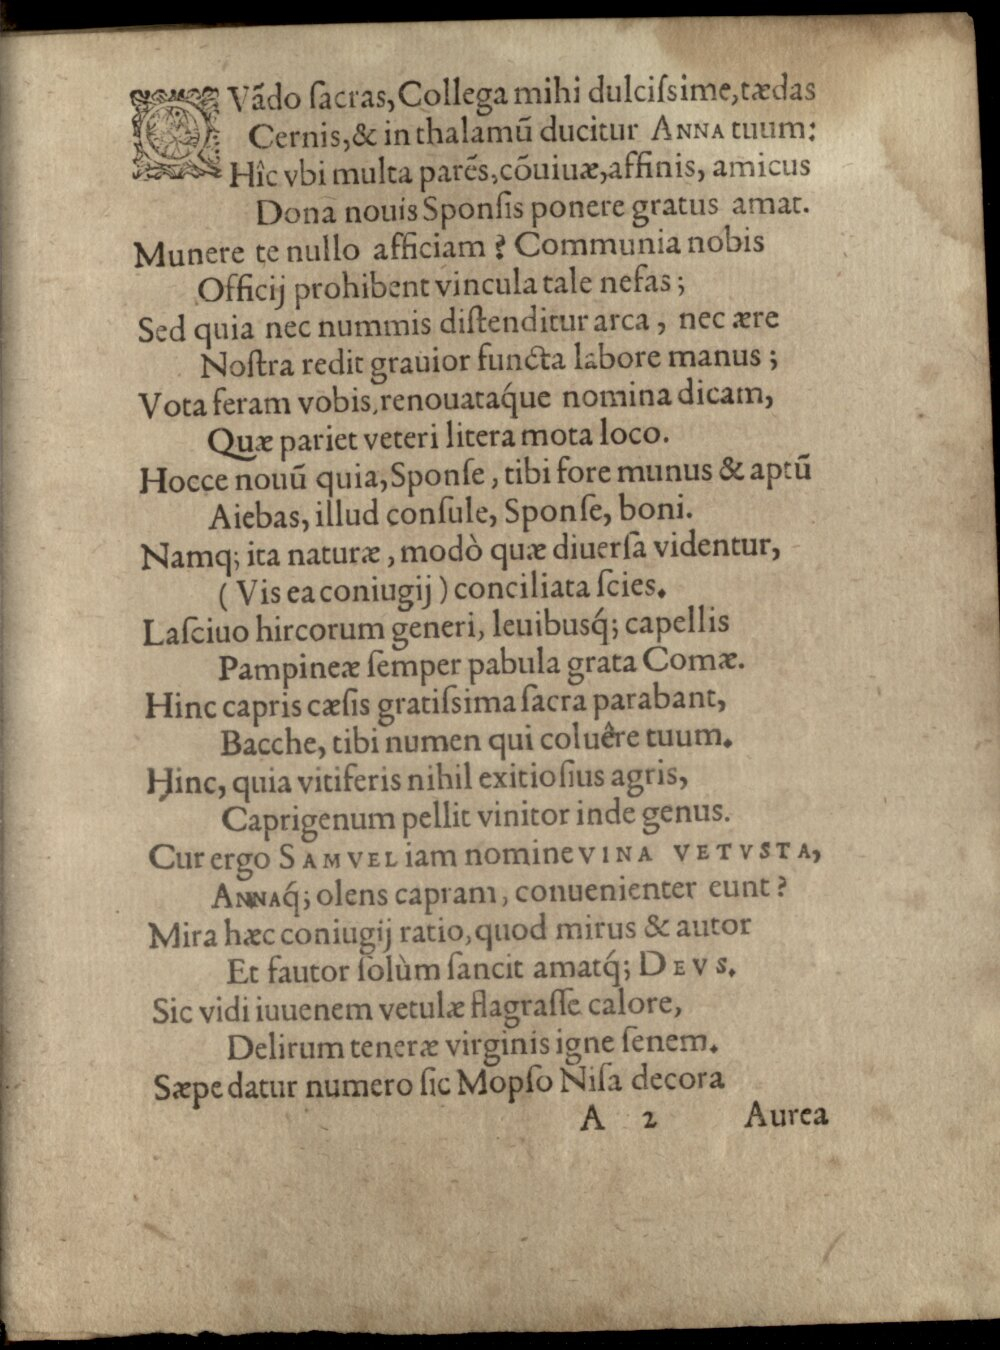 QVãdo ſacras, Collega mihi dulciſsime, tædas
Cernis, & in thalamũ ducitur ANNA tuum:
Hîc vbi multa parẽs, cõuiuæ, affinis, amicus
Dona nouis Sponſis ponere gratus amat.
Munere te nullo afficiam? Communia nobis
Officij prohibent vincula tale nefas;
Sed quia nec nummis diſtenditur arca, nec ære
Noſtra redit grauior functa labore manus;
Vota feram vobis, renouataq́ue nomina dicam,
Quæ pariet veteri litera mota loco.
Hocce nouũ quia, Sponſe, tibi fore munus & aptũ
Aiebas, illud conſule, Sponſe, boni.
Namq; ita naturæ, modò quæ diuerſa videntur,
(Vis ea coniugij) conciliata ſcies.
Laſciuo hircorum generi, leuibusq́; capellis
Pampineæ ſemper pabula grata Comæ.
Hinc capris cæſis gratiſsima ſacra parabant,
Bacche, tibi numen qui coluêre tuum.
Hinc, quia vitiferis nihil exitioſius agris,
Caprigenum pellit vinitor inde genus.
Cur ergo SAMVEL iam nomine VINA VETVSTA,
ANNAq́; olens capram, conuenienter eunt?
Mira hæc coniugij ratio, quod mirus & autor
Et fautor ſolùm ſancit amatq́; DEVS.
Sic vidi iuuenem vetulæ flagraſſe calore,
Delirum teneræ virginis igne ſenem.
Sæpe datur numero ſic Mopſo Niſa decora
A 2 Aurea